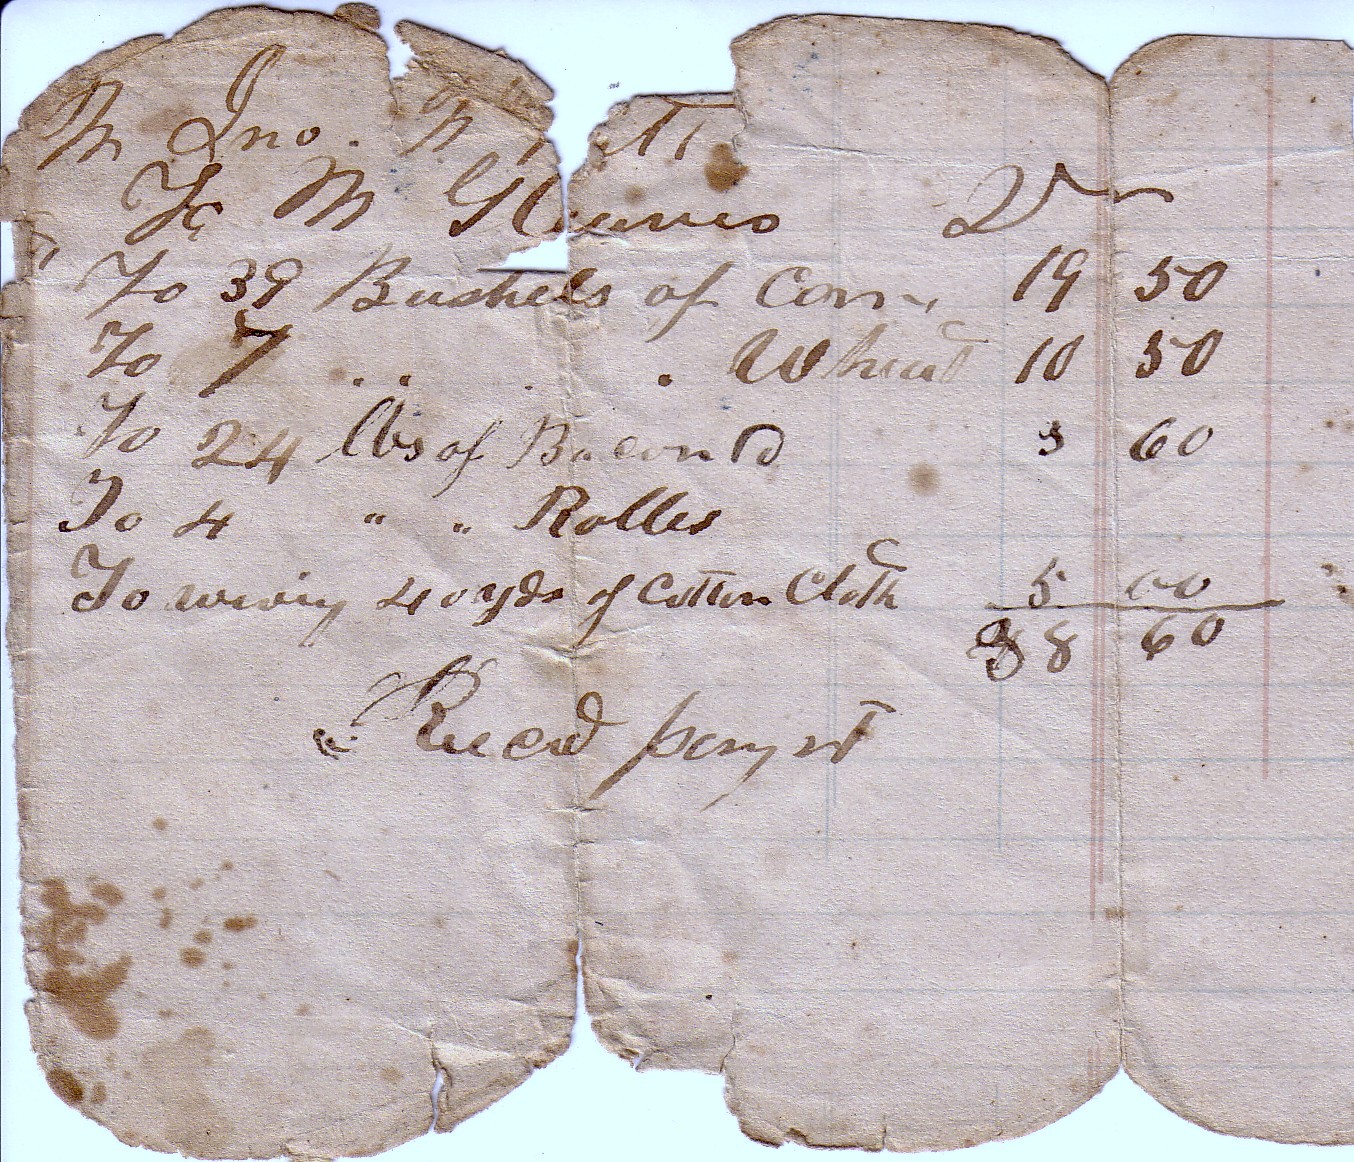 Jno.
To M Dr
To 39 Bushels of Corn, 19 50
To 7 .. . . Wheat 10 50
To 24 lbs of Bacon 3 60
To 4 " " Rolles
To weving 40 yds of Cotton Cloth 5 00
38 60
Recd payt